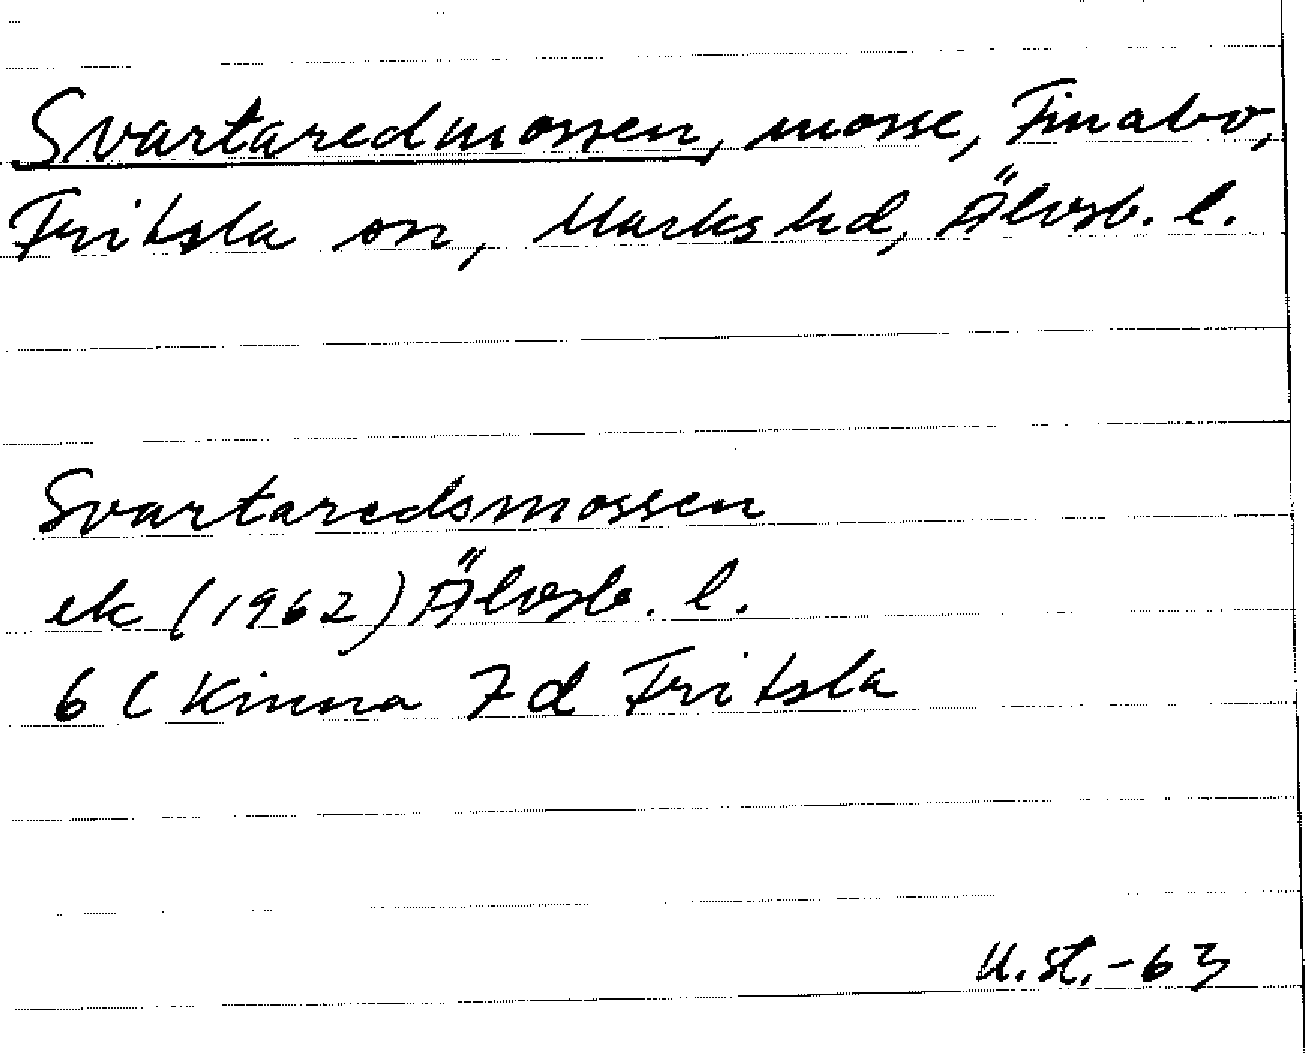 Svartaredmossen, mosse, Finabo,
Fritsla sn, Marks hd, Älvsb. l.
Svartaredsmossen
ek (1962) Älvsb. l.
6 C Kinna 7d Fritsla
U.St.-63